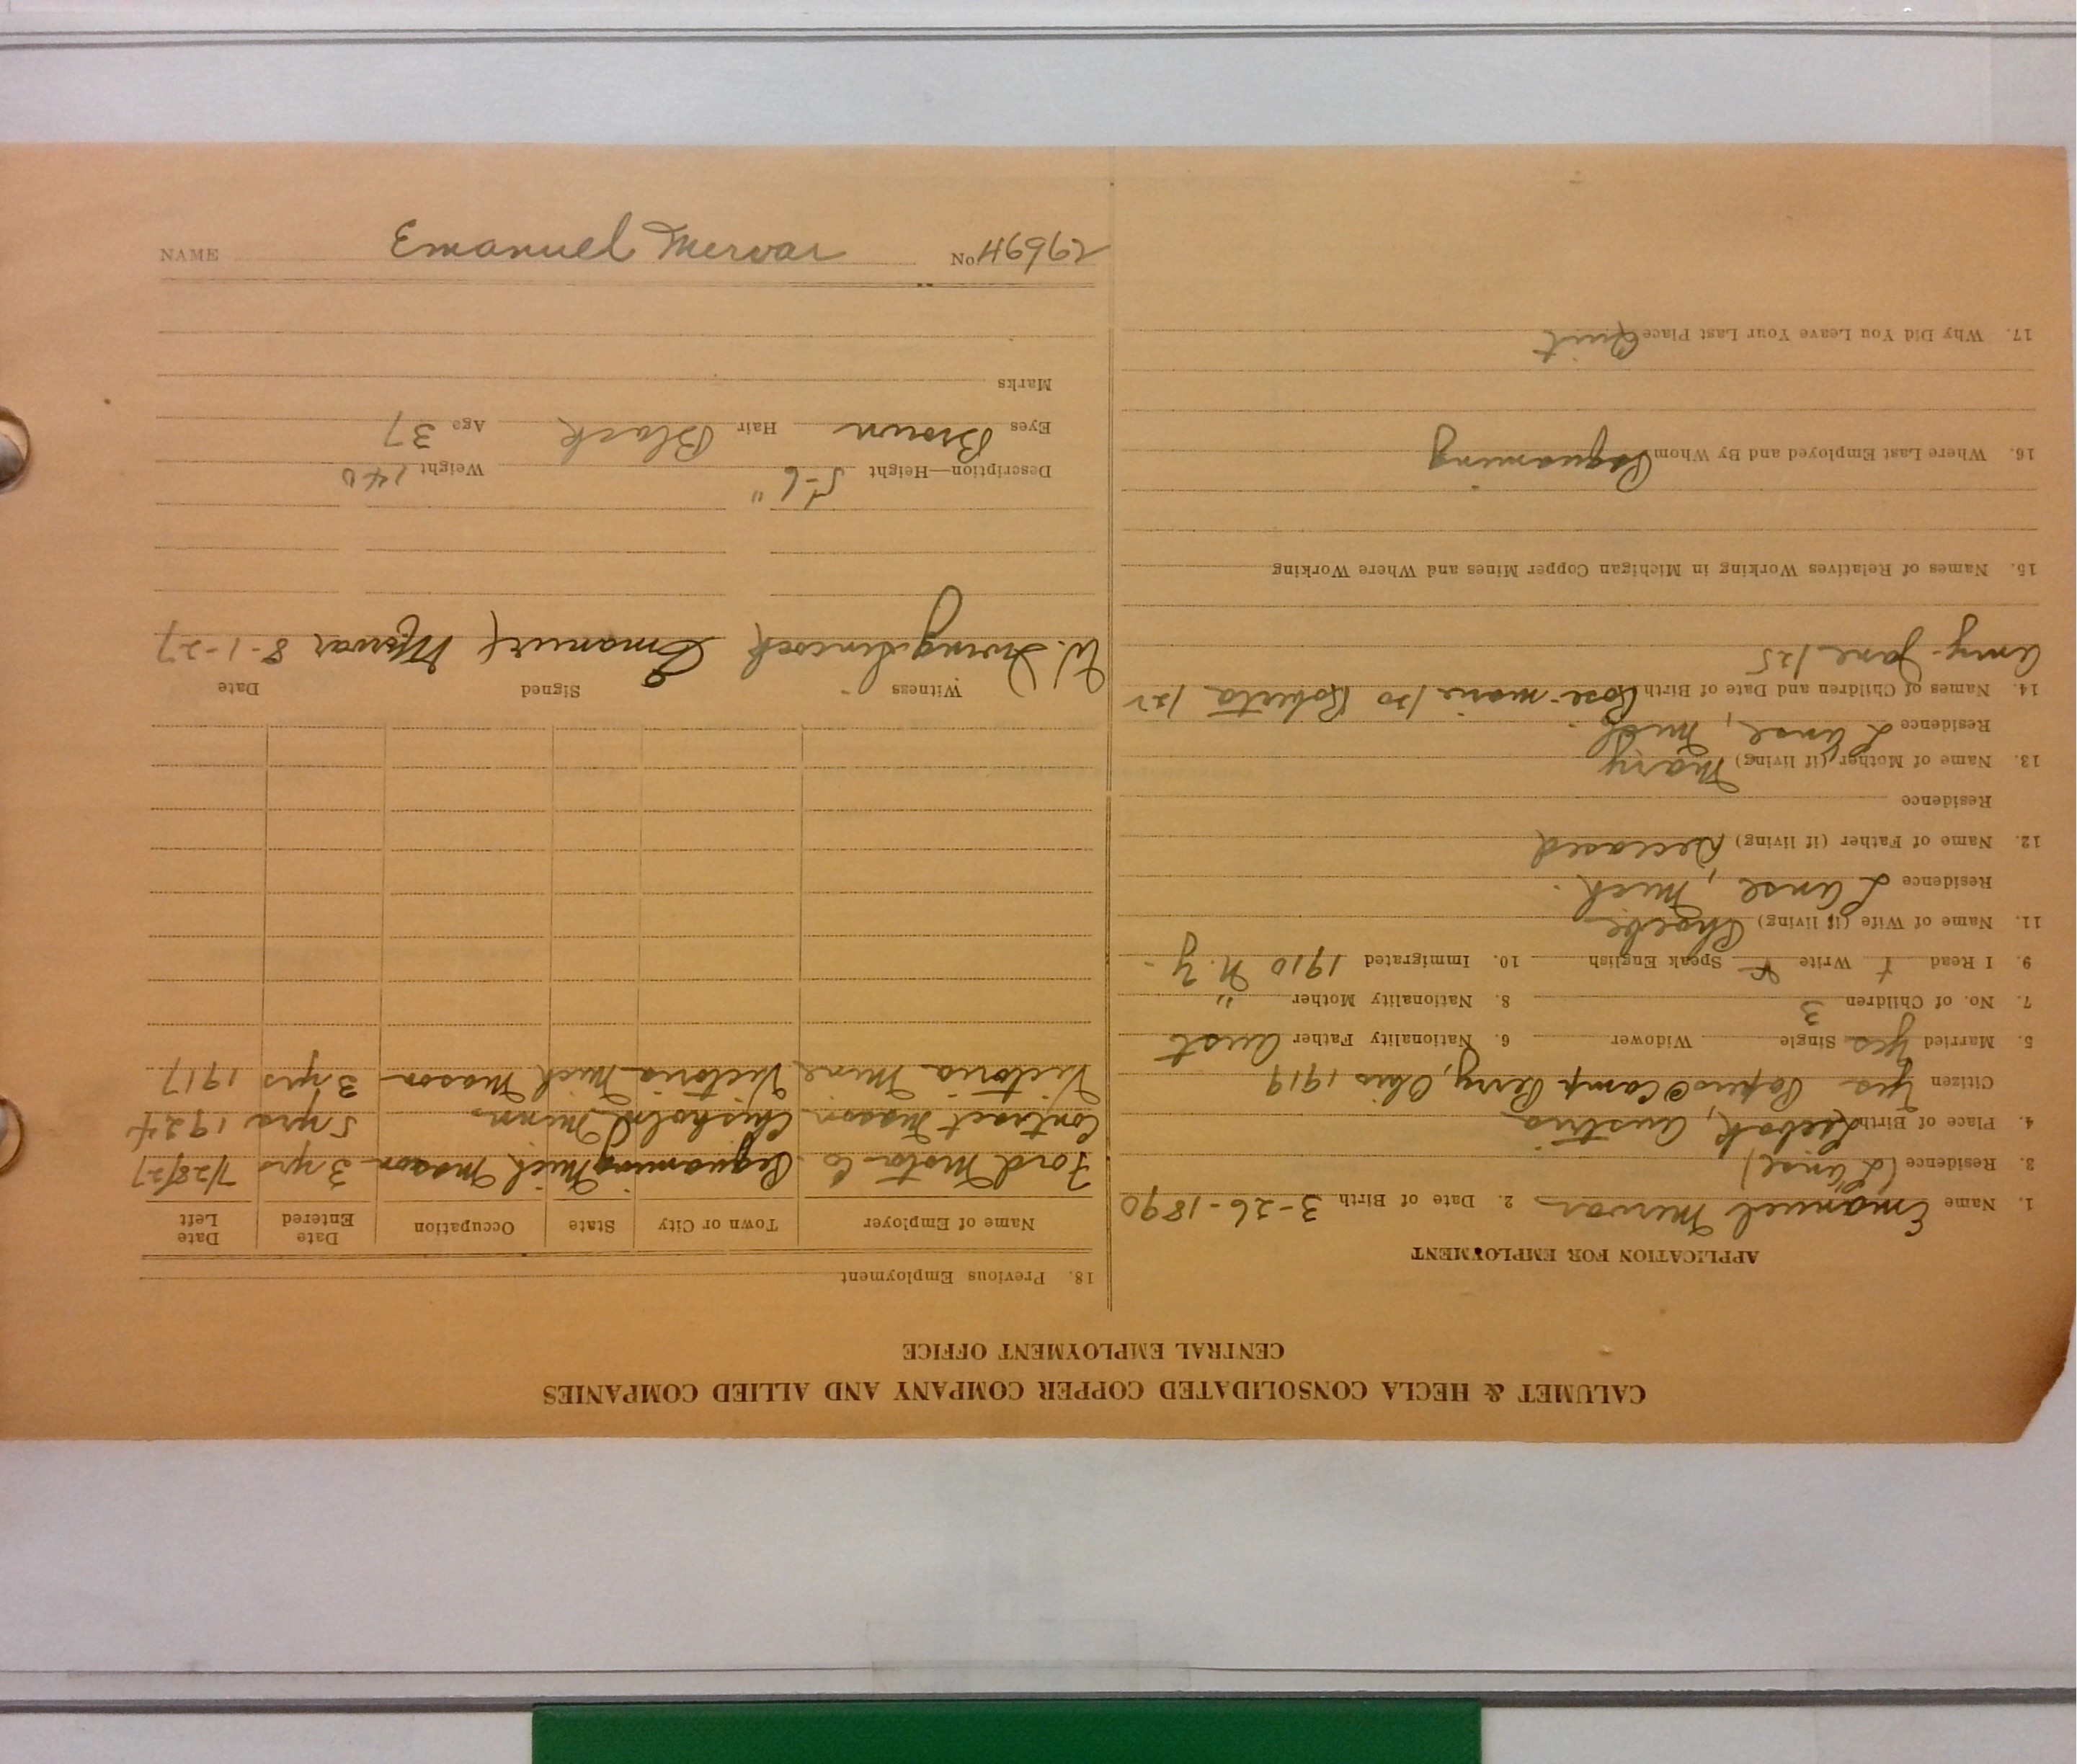 CALUMET & HECLA CONSOLIDATED COPPER COMPANY AND ALLIED COMPANIES
CENTRAL EMPLOYMENT OFFICE
APPLICATION FOR EMPLOYMENT
1. Name Emanuel Mervar 2. Date of Birth 3-26-1890
3. Residence (L'anse)
4. Place of Birth Austria
Citizen Yes Papers @ Camp Perry, Ohio 1919
5. Married Yes Single Widower 6. Nationality Father Aust
7. No. of Children 3 8. Nationality Mother "
9. I Read Write Speak English 10. Immigrated 1910 N.Y.
11. Name of Wife (if living) Phoebe
Residence L'anse, Mich.
12. Name of Father (if living) Deceased
Residence
13. Name of Mother (if living) Mary
Residence L'anse, Mich.
14. Names of Children and Date of Birth Rose-marie /20 Roberta /22
Amy-Jane /25
15. Names of Relatives Working in Michigan Copper Mines and Where Working
16. Where Last Employed and By Whom Pequaming
17. Why Did You Leave Your Last Place Quit
18. Previous Employment
Name of Employer Town or City State Occupation Date Entered Date Left
Ford Motor Co. Pequaming Mich Mason 3 yrs 7/28/27
Contract Mason Chisholm Minn 5 yrs 1924
Victoria Mine Victoria Mich Mason 3 yrs 1917
Witness Signed Date
W. Irving Emanuel Mervar 8-1-27
Description—Height 5-6" Weight 140
Eyes Brown Hair Black Age 37
Marks
NAME Emanuel Mervar No. 29694